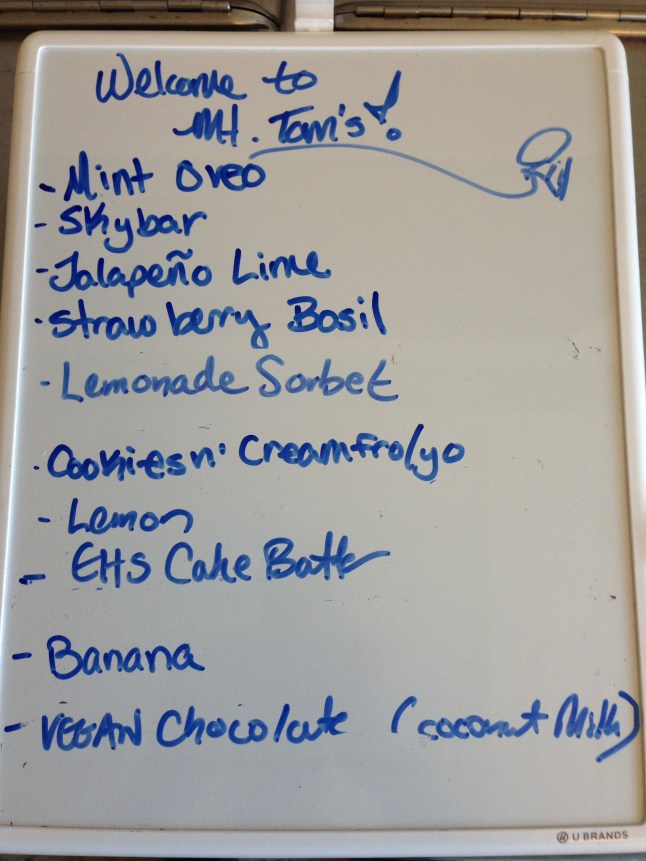 Welcome to
Mt. Tam's!
- Mint Oreo
- Skybar
- Jalapeño Lime
- Strawberry Basil
- Lemonade Sorbet
- Cookies n' Cream fro/yo
- Lemon
- EHS Cake Batter
- Banana
- VEGAN Chocolate (coconut Milk)
U BRANDS